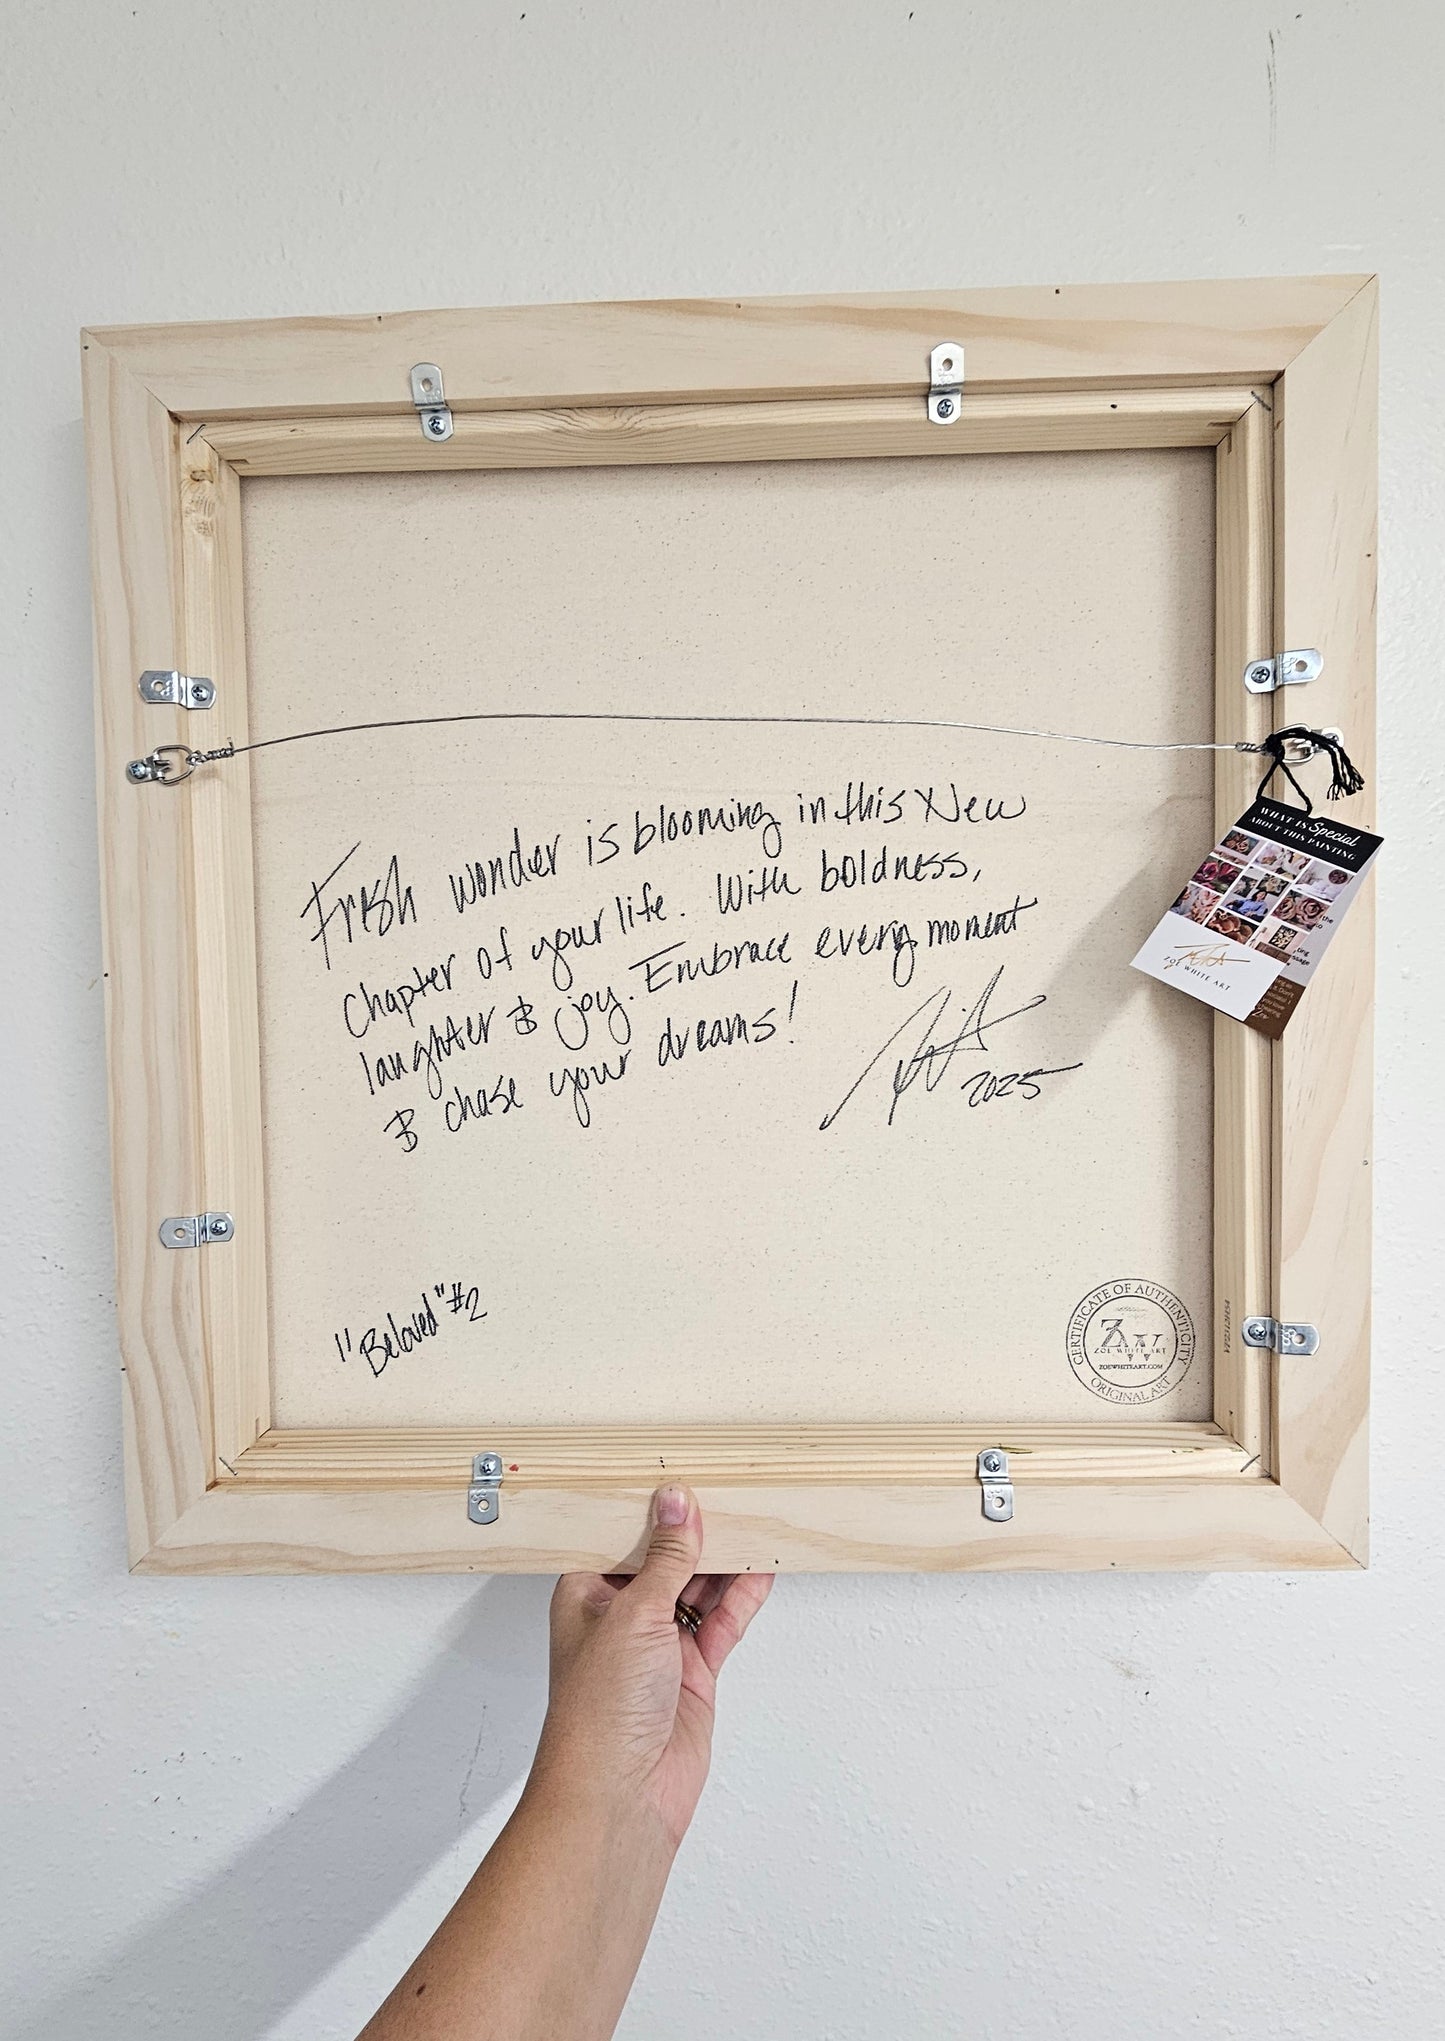 Fresh wonder is blooming in this New
Chapter of your life. With boldness,
laughter & joy. Embrace every moment
& chase your dreams!
2025
"Beloved" #2
WHAT IS Special
ABOUT THIS PAINTING
ZOE WHITE ART
CERTIFICATE OF AUTHENTICITY
ZOE WHITE ART
ZOEWHITEART.COM
ORIGINAL ART